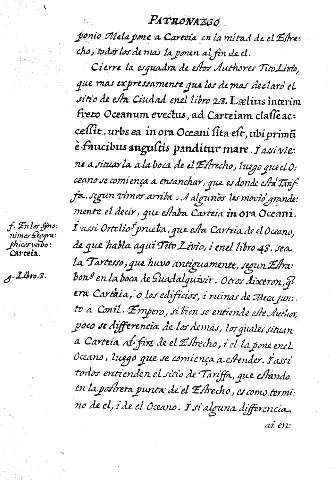 PATRONAZGO
ponio Mela pone a Carteia en la mitad de el Estre-
cho, todos los de mas la ponen al fin de el.
Cierre la esquadra de estos Authores Tito Livio,
que mas expressamente que los de mas declarò el
sitio de esta Ciudad en el libro 28. Lælius interim
freto Oceanum evectus, ad Carteiam classe ac-
cessit. urbs ea in ora Oceani sita est, ubi primũ
è faucibus augustis panditur mare. I assi vie-
ne a situarla a la boca de el Estrecho, luego que el O-
ceano se comiença a ensanchar, que es donde esta Tarif-
fa. segun vimos arriba. A algunos les movio grande-
mente el decir, que estaba Carteia in ora Oceani.
I assi Ortelio prueba, que esta Carteia de el Oceano,
de que habla aqui Tito Livio, i en el libro 43. sea
la Tartesso, que huvo antiguamente, segun Estra-
bon en la boca de Guadalquivir. Otros dixeron, q̃
era Carteia, o los edificios, i ruinas de Meca jun-
to a Conil. Empero, si bien se entiende este Author,
poco se differencia de los de más, los quales situan
a Carteia al fin de el Estrecho, i el la pone en el
Oceano, luego que se comiença a estender. I assi
todos entienden el sitio de Tariffa, que estando
en la postrera punta de el Estrecho, es como termi-
no de el, i de el Oceano. I si alguna differencia
ai en:
f. En los Syno-
nimos Geogra-
phicos vbo
Carteia.
g. Libro. 3.